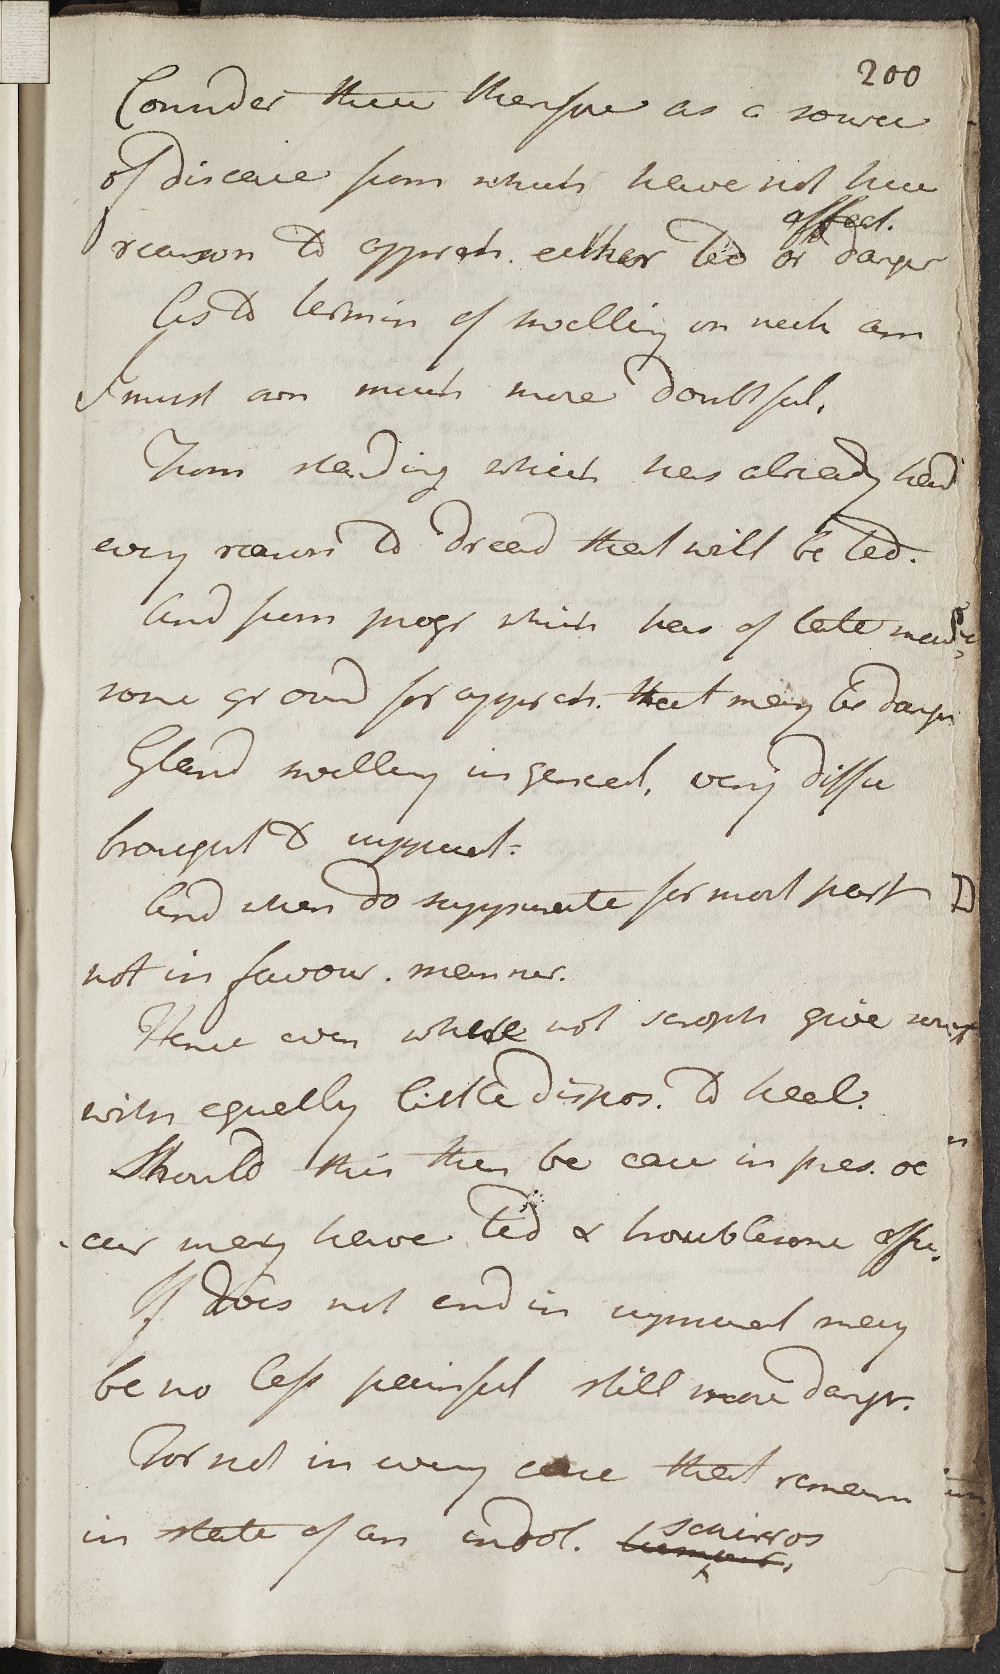 200
Consider these therefore as a source
of disease from which have not here
affect.
reason to appreh. either ted or danger
As to termin of swelling on neck am
I must own much more doubtful.
From standing which has already had
every reason to dread that will be ted.
And from progr which has of late made
some ground for appreh. that may be danger
Gland swelling in general, very diffic
brought to suppurat.
And when do suppurate for most part
not in favour. manner.
Hence even where not scroph give sores
with equally little dispos. to heal.
Should this then be case in pres. oc
cur may have ted & troublesome affec.
If does not end in suppurat may
be no less painful still more danger.
For not in every case that remain
in state of an indol. schirros